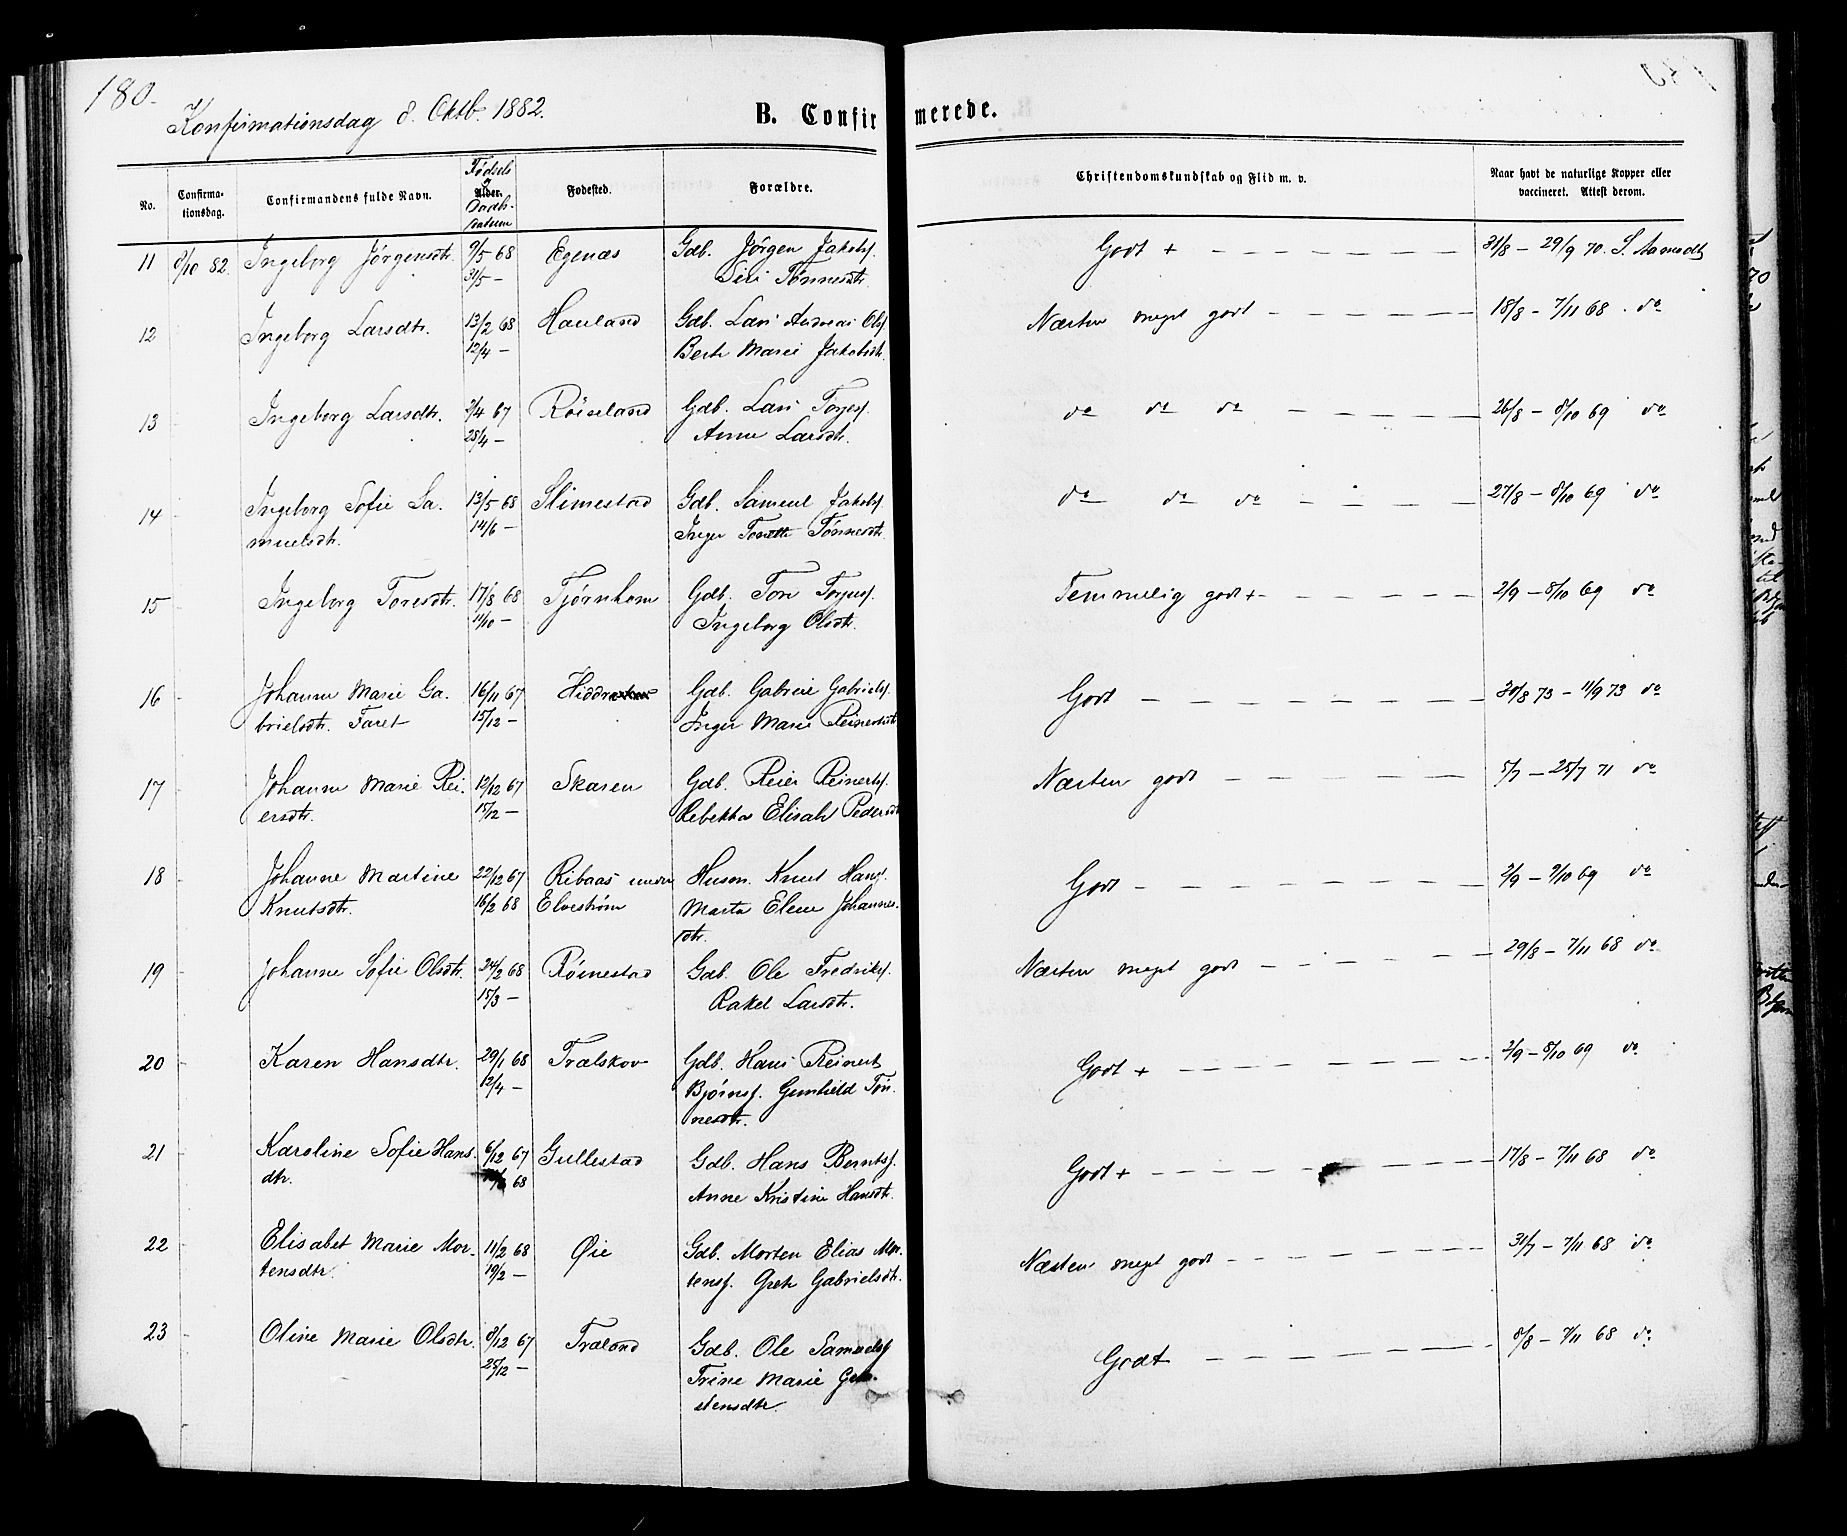 180.
Konfirmationsdag 8. Oktb. 1882.
B. Confirmerede.
No.
Confirma-
tionsdag.
Confirmandens fulde Navn.
Fødsels
og
Alder.
Daabs-
datum
Fødested.
Forældre.
Christendomskundskab og Flid m. v.
Naar havt de naturlige Kopper eller
vaccineret. Attest derom.
11 8/10 82. Ingeborg Jørgensdtr. 9/5 68 Egenæs Gdb. Jørgen Jakobsf. Godt + — — — 31/8 — 29/9 70. S.
31/5 — Siri Tønnesdtr.
12 Ingeborg Larsdtr. 13/2 68 Hauland Gdb. Lars Andreas Olsf. Næsten meget godt — — — 18/8 — 7/11 68. do
12/4 — Berte Marie Jakobsdtr.
13 Ingeborg Larsdtr. 2/4 67 Røiseland Gdb. Lars Torjesf. do do do — — — 26/8 — 8/10 69 do
28/4 — Anne Larsdtr.
14 Ingeborg Sofie Sa- 13/5 68 Slimestad Gdb. Samuel Jakobsf. do do do — — — 27/8 — 8/10 69 do
muelsdtr. 14/6 — Inger Tonette Tønnesdtr.
15 Ingeborg Toresdtr. 17/8 68 Tjørnhom Gdb. Tore Torjusf. Temmelig godt + — — — 2/9 — 8/10 69 do
11/10 — Ingeborg Olsdtr.
16 Johanne Marie Ga- 16/11 67 Hiddra Gdb. Gabriel Gabrielsf. Godt — — — 30/8 73 — 11/9 73 do
brielsdtr. Faret 15/12 — Inger Marie Reinertsdtr.
17 Johanne Marie Rei- 12/12 67 Skaren Gdb. Reier Reinertsf. Næsten godt — — — 5/7 — 25/7 71 do
ersdtr. 15/12 — Rebekka Elisab. Pedersdtr
18 Johanne Martine 22/12 67 Ribaas under Husm. Knut Hansf. Godt — — — 2/9 — 9/10 69 do
Knutsdtr. 16/2 68 Elvestrøm Marta Elene Johannes-
dtr.
19 Johanne Sofie Olsdtr. 24/2 68 Rømestad Gdb. Ole Fredriksf. Næsten meget godt — — — 29/8 — 7/11 68 do
15/3 — Rakel Larsdtr.
20 Karen Hansdtr. 29/1 68 Trælskov Gdb. Hans Reinert Godt + — — — 2/9 — 8/10 69 do
12/4 — Bjørnsf. Gunhild Tøn-
nesdtr.
21 Karoline Sofie Hans- 6/12 67 Gullestad Gdb. Hans Berntsf. Godt + — — — 17/8 — 7/11 68 do
dtr. 68 Anne Kristine Hansdtr.
22 Elisabet Marie Mor- 11/2 68 Øie Gdb. Morten Elias Mor- Næsten meget godt — — — 31/7 — 7/11 68 do
tensdtr. 19/2 — tensf. Grete Gabrielsdtr.
23 Oline Marie Olsdtr. 8/12 67 Træland Gdb. Ole Samuelsf. Godt — — — 8/8 — 7/11 68 do
25/12 — Trine Marie
stensdtr.